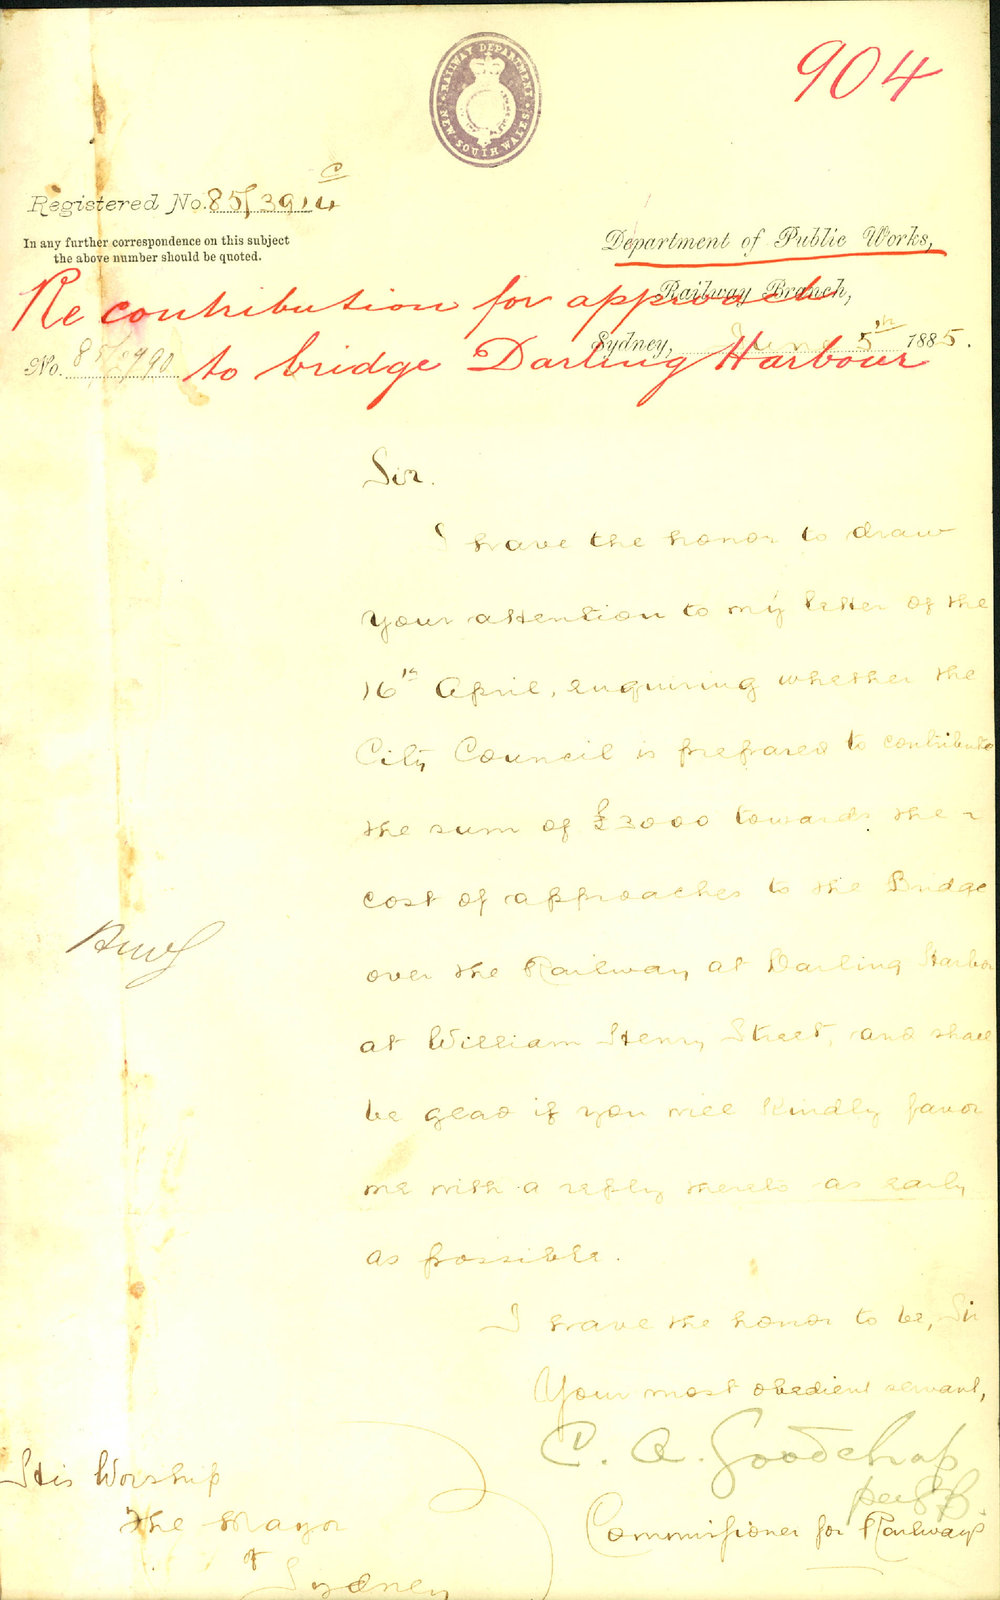 904
RAILWAY DEPARTMENT
NEW SOUTH WALES
Registered No. 85/3914 C
In any further correspondence on this subject
the above number should be quoted.
Department of Public Works,
Railway Branch,
Re contribution for approach
Sydney, June 5th 1885.
No. 85/2990
to bridge Darling Harbour
Sir.
I have the honor to draw
your attention to my letter of the
16th April, enquiring whether the
City Council is prepared to contribute
the sum of £3000 towards the
cost of approaches to the Bridge
over the Railway at Darling Harbor
at William Henry Street, and shall
be glad if you will kindly favor
me with a reply thereto as early
as possible.
I have the honor to be, Sir
Your most obedient servant,
C. A. Goodchap
per
Commissioner for Railways
His Worship
The Mayor
of
Sydney